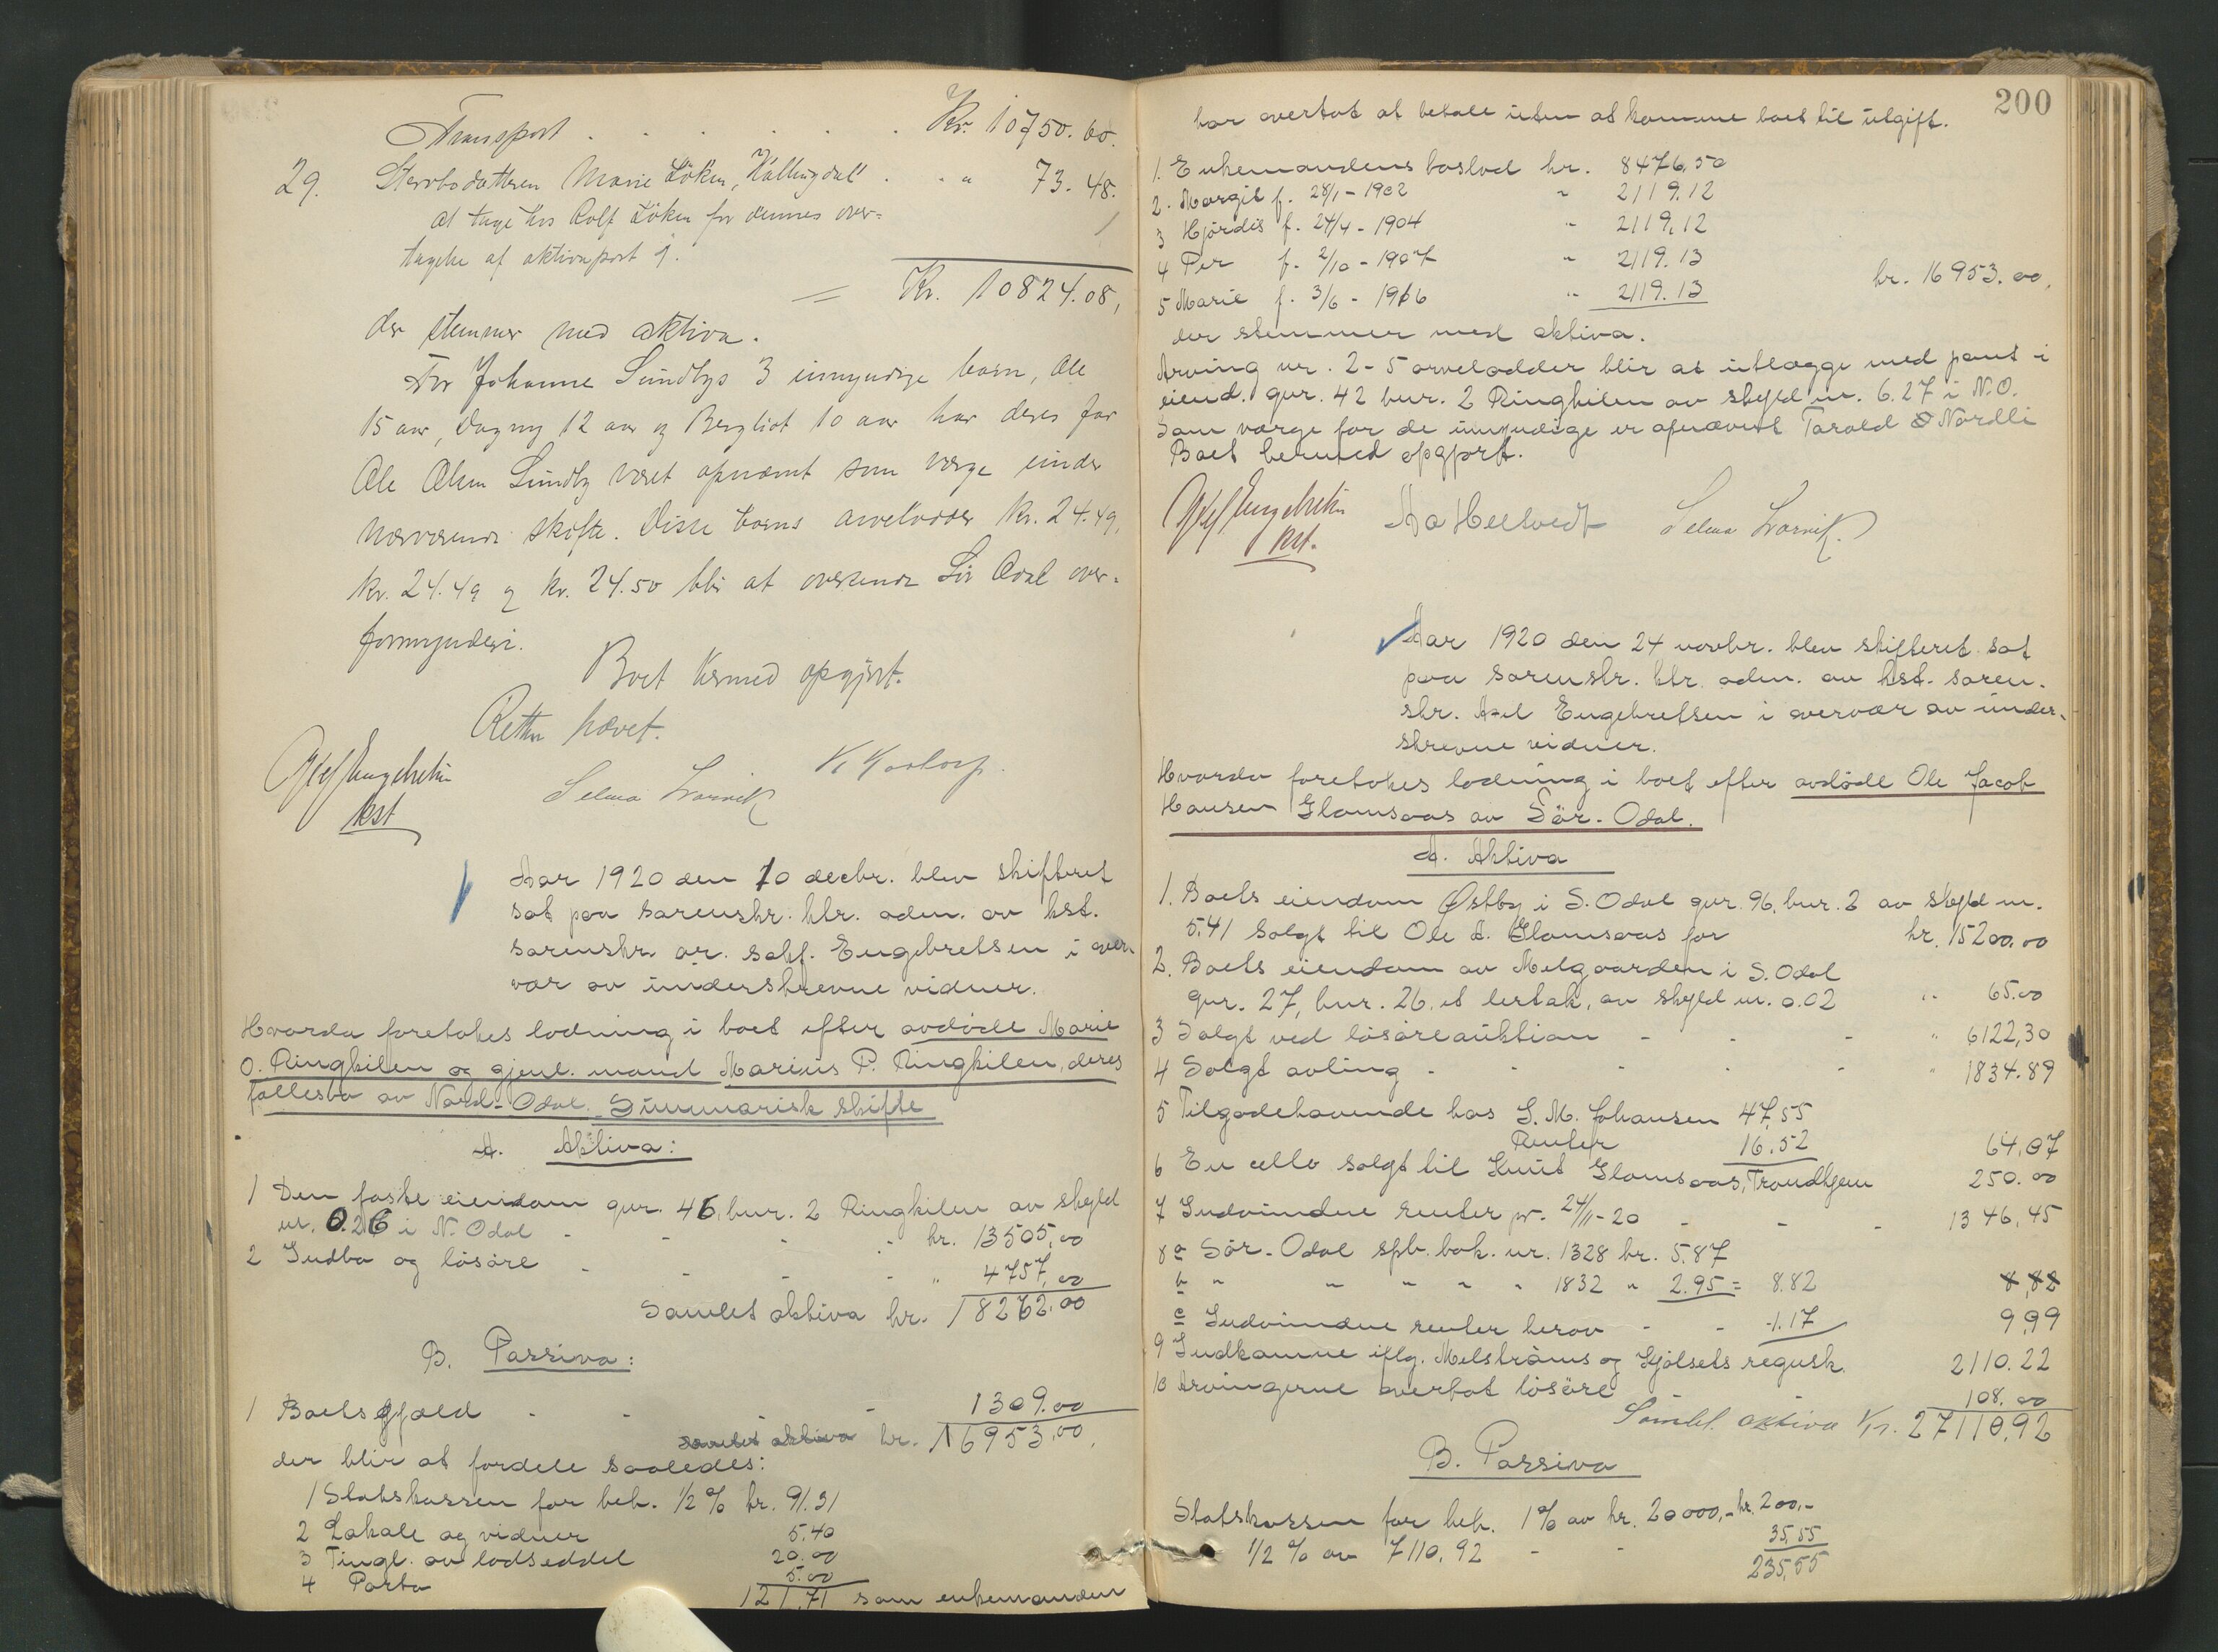 Transport . . . . . . Kr. 10750.60.
29. Stervbodatteren Marie Löken, "Hallingdal" . . " 73.48.
at tage hos Rolf Löken for dennes over-
tagelse af aktivapost 9.
= Kr. 10824.08,
der stemmer med aktiva.
For Johanne Sundbys 3 umyndige barn, Ole
15 aar, Dagny 12 aar og Bergliot 10 aar har deres far
Ole Olsen Sundby været opnævnt som verge under
nærværende skifte. Disse barns arvelodder kr. 24.49,
kr. 24.49 og kr. 24.50 blir at oversende Sör Odal over-
formynderi.
Boet hermed opgjört.
Retten hævet.
Axel Engebretsen
kst
Selma Larvik
K Kortorp.
Aar 1920 den 10 decbr. blev skifteret
sat paa sorenskr. ktr. adm. av kst.
sorenskr. or. sakf. Engebretsen i over-
vær av underskrevne vidner.
Hvorda foretokes lodning i boet efter avdöde Marie
O. Ringkilen og gjenl. mand Marius P. Ringkilen, deres
fællesbo av Nord-Odal. Summarisk skifte
A. Aktiva:
1 Den faste eiendom gnr. 46, bnr. 2 Ringkilen av skyld
m. 0.26 i N. Odal - - - - kr. 13505,00
2 Indbo og lösöre - - - - " 4757,00
Samlet aktiva kr. 18262.00
B. Passiva:
1 Boets gjæld - - - - 1309.00
samlet aktiva kr. 16953,00,
der blir at fordele saaledes:
1 Statskassen for beh. 1/2 % kr. 91.31
2 Lokale og vidner 5.40
3 Tingl. av lodseddel 20.00
4 Porto 5.00
121,71 som enkemanden
200
har overtat at betale uten at komme boet til utgift.
1. Enkemandens boslod kr. 8476,50
2. Margit f. 28/1 - 1902 " 2119.12
3 Hjördis f. 24/4 - 1904 " 2119,12
4 Per f. 2/10 - 1907 " 2119.13
5 Marie f. 3/6 - 1916 " 2119.13 kr. 16953.00,
der stemmer med aktiva.
Arving nr. 2-5 arvelodder blir at utlægge med pant i
eiend. gnr. 42 bnr. 2 Ringkilen av skyld m. 6.27 i N.O.
Som værge for de umyndige er opnævnt Torald Nordli
Boet hermed opgjort.
Axel Engebretsen
kst.
Aa Hellvedt
Selma Larvik.
Aar 1920 den 24 novbr. blev skifteret sat
paa sorenskr. ktr. adm. av kst. soren-
skr. Axel Engebretsen i overvær av under-
skrevne vidner.
Hvorda foretokes lodning i boet efter avdöde Ole Jacob
Hansen Glomsaas av Sör-Odal.
A. Aktiva
1. Boets eiendom Østby i S. Odal gnr. 96, bnr. 2 av skyld m.
5.41 solgt til Ole A. Glomsaas for kr. 15200.00
2. Boets eiendom av Melgaarden i S. Odal
gnr. 27, bnr. 26. et lertak, av skyld m. 0.02 " 65.00
3 Solgt ved lösöreauktion - - - " 6122,30
4 Solgt avling - - - - - " 1834.89
5 Tilgodehavende hos S. M. Johansen 47,55
Renter 16.52 64,07
6 En cello solgt til Knut Glomsaas, Trondhjem 250.00
7 Indvundne renter pr. 24/11-20 - - - 1346,45
8 a Sör-Odal spb. bok. nr. 1328 kr. 5.87
b " " " " " 1832 " 2.95 = 8.82 8,82
c Indvundne renter herav - - 1.17 9,99
9 Indkomne iflg. Melströms og Kjölsets regnsk. 2110.22
10 Arvingerne overtat lösöre 108.00
Samlet aktiva Kr. 27110,92
B. Passiva
Statskassen for beh. 1% av kr. 20000,- kr. 200,-
1/2 % av 7110.92 - - 35,55
235,55